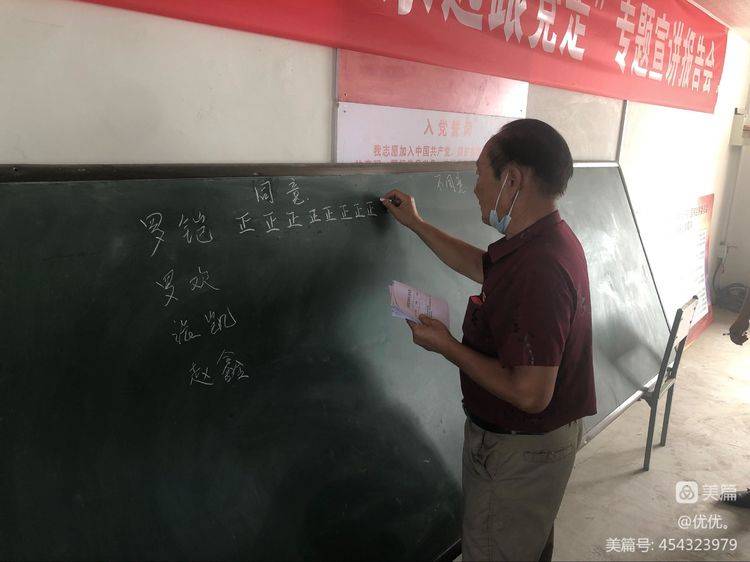 跟党走”专题宣讲报告会
入党誓词
我志愿加入中国共产党
同意
不同意
罗铠 正正正正正正正正
罗欢
赵鑫
美篇
@优优。
美篇号: 454323979